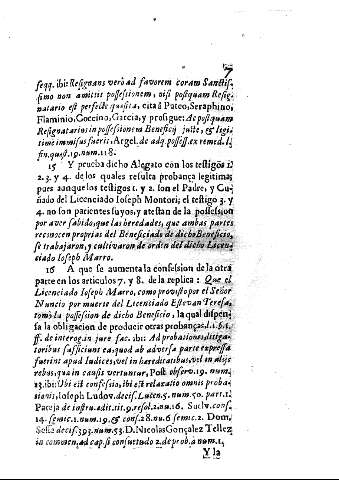 7
seqq. ibi: Resignans verò ad favorem coram Sanctis-
simo non amittit possessionem, nisi postquam Resig-
natario est perfectè quæsita, cita à Puteo, Seraphino,
Flaminio, Coccino, Garcia, y prosigue: Ac postquam
Resignatarius in possessionem Beneficij juste, & legi-
time immissus fuerit. Argel. de adq. possess. ex remed. l.
fin. quæst. 19. num. 118.
15 Y prueba dicho Alegato con los testigos 1.
2. 3. y 4. de los quales resulta probança legitima;
pues aunque los testigos 1. y 2. son el Padre, y Cu-
ñado del Licenciado Joseph Montori; el testigo 3. y
4. no son parientes suyos, y atestan de la possession
por aver sabido, que las heredades, que ambas partes
reconocen proprias del Beneficiado de dicho Beneficio,
se trabajaron, y cultivaron de orden del dicho Licen-
ciado Joseph Marro.
16 A que se aumenta la confession de la otra
parte en los articulos 7. y 8. de la replica: Que el
Licenciado Joseph Marro, como provisto por el Señor
Nuncio por muerte del Licenciado Estevan Teresa,
tomò la possession de dicho Beneficio, la qual dispen-
sa la obligacion de producir otras probanças. l. 1. §. 1.
ff. de interrog. in jure fac. ibi: Ad probationes, litiga-
toribus sufficiunt ea, quod ab adversa parte expressa
fuerint apud Iudices, vel in hereditatibus, vel in alijs
rebus, quæ in causis vertuntur, Post observ. 19. num.
13. ibi: Ubi est confessio, ibi est relaxatio omnis proba-
tionis, Joseph Ludov. decis. Lucen. 5. num. 50. part. 1.
Pareja de instru. edit. tit. 9. resol. 2. nu. 16. Suelv. cons.
14. semic. 1. num. 19. & cons. 28. nu. 6 semic. 2. Dom.
Sesse decis. 393. num. 53. D. Nicolas Gonçalez Tellez
in commen, ad cap. si consuetudo 2. de prob. à num. 1.
Y la